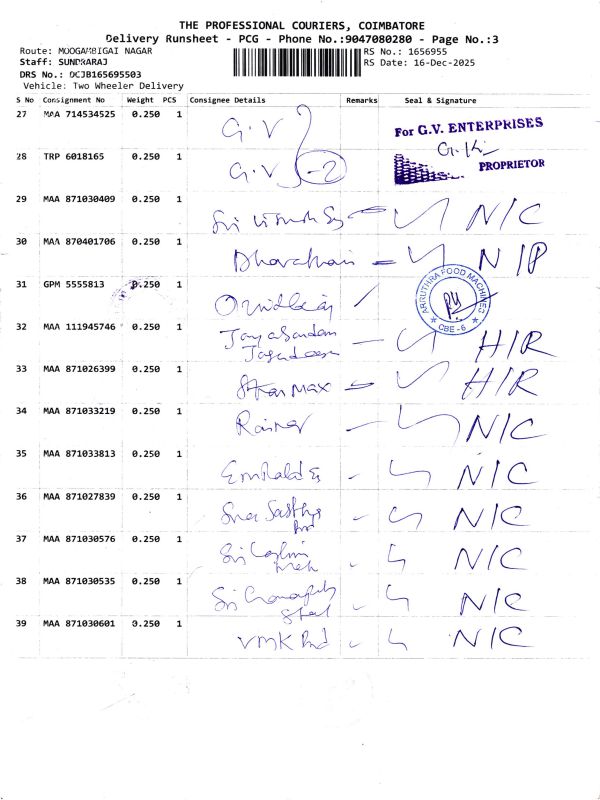 THE PROFESSIONAL COURIERS, COIMBATORE
Delivery Runsheet - PCG - Phone No.:9047080280 - Page No.:3
Route: MOOGAMBIGAI NAGAR
RS No.: 1656955
Staff: SUNDRARAJ
RS Date: 16-Dec-2025
DRS No.: DCJB165695503
Vehicle: Two Wheeler Delivery
S No Consignment No Weight PCS Consignee Details Remarks Seal & Signature
27 MAA 714534525 0.250 1 G.V
For G.V. ENTERPRISES
28 TRP 6018165 0.250 1 G.V -2
PROPRIETOR
29 MAA 871030409 0.250 1 Sri N/C
30 MAA 870401706 0.250 1
31 GPM 5555813 0.250 1
ARRUTHRA FOOD MACHINES
CBE-6
32 MAA 111945746 0.250 1 H/R
33 MAA 871026399 0.250 1 H/R
34 MAA 871033219 0.250 1 N/C
35 MAA 871033813 0.250 1 N/C
36 MAA 871027839 0.250 1 N/C
37 MAA 871030576 0.250 1 Sri N/C
38 MAA 871030535 0.250 1 Sri N/C
39 MAA 871030601 0.250 1 VMK N/C